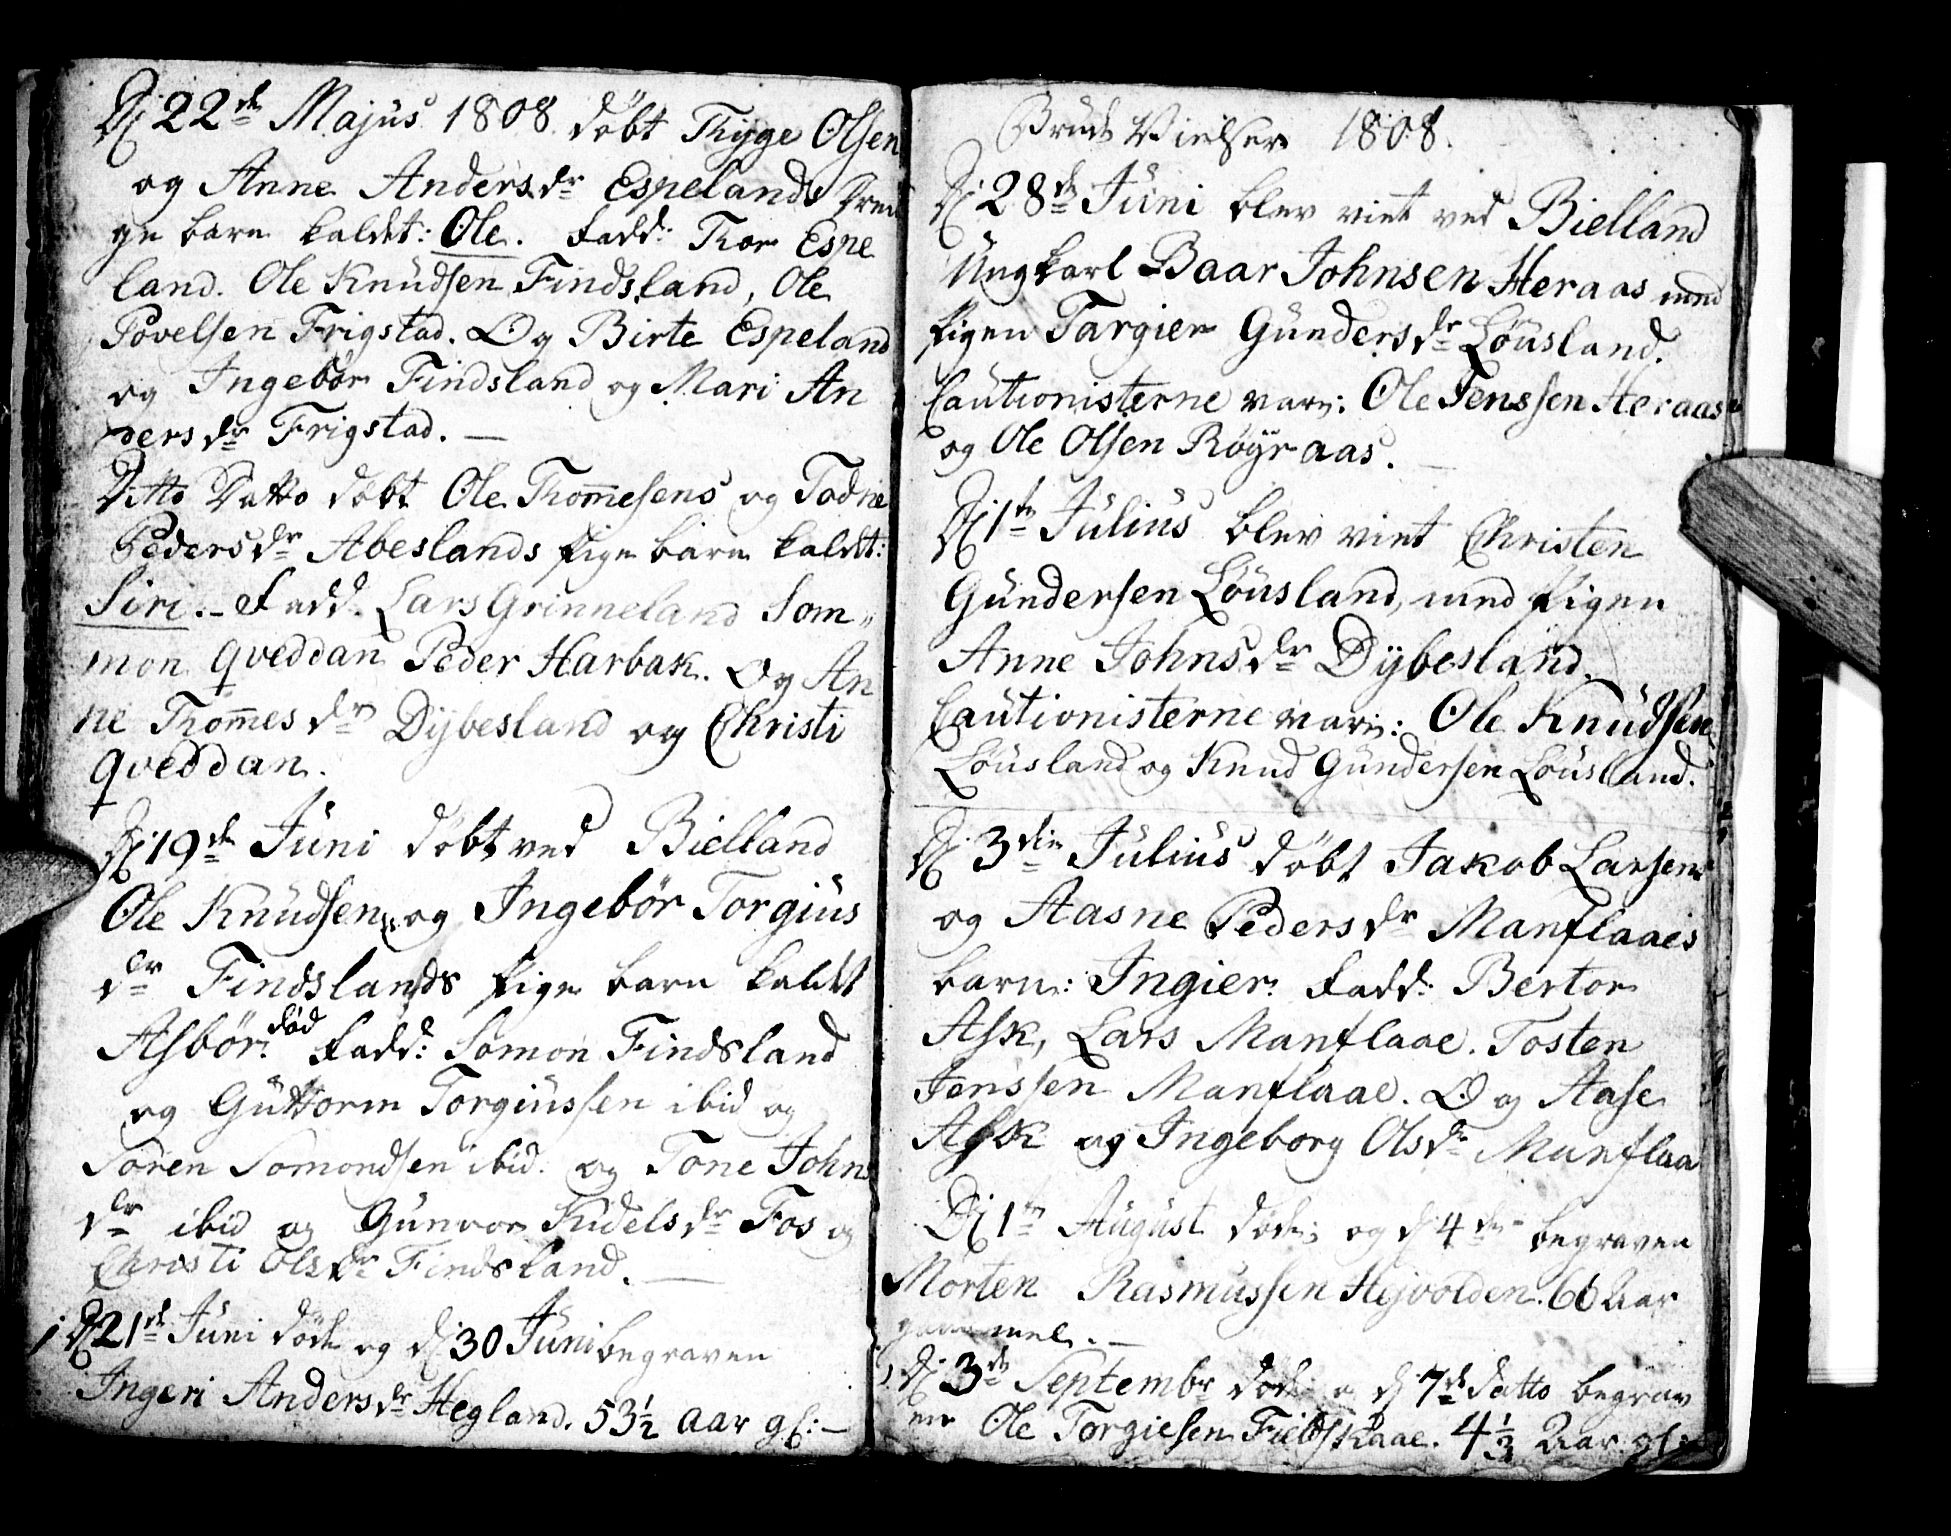 D: 22de Majus 1808 döbt Thyge Olsen
og Anne Andersdr Espelands Dren
ge barn kaldt: Ole. Fadd: Thor Espe
land. Ole Knudsen Findsland, Ole
Povelsen Frigstad. Og Birte Espeland
og Ingebör Findsland og Mari An
dersdr Frigstad. —
Ditto Datto döbt Ole Thom̄esens og Todne
Pedersdr Abeslands Pige barn kaldt:
Siri. – Fadd: Lars Grinneland Som„
mon Qveddan Peder Harbak. Og An
ne Thom̄esdr Dÿbesland og Christi
Qveddan.
D: 19de Juni döbt ved Bielland
Ole Knudsen og Ingebör Torgius
dr Findslands Pige barn kaldt
Asbör. död Fadd: Somon Findsland
og Guttorm Torgiussen ibid og
Sören Somondsen ibid. og Tone Johns
dr ibid og Gunvor Kidelsdr Fos og
Christi Olsdr Findsland. —
D: 21de Juni döde og d: 30 Juni begraven
Ingeri Andersdr Hegland. 53½ Aar gl: —
Brude Vielser 1808.
D: 28de Juni blev viet ved Bielland
Ungkarl Baar Johnsen Heraas med
Pigen Targier Gundersdr Löusland.
Cautionisterne vare: Ole Jenssen Heraas
og Ole Olsen Röÿraas. —
D: 1te Julius blev viet Christen
Gundersen Löusland, med Pigen
Anne Johnsdr Dÿbesland.
Cautionisterne vare: Ole Knudsen
Löusland og Knud Gundersen Löusland.
D: 3die Julius döbt Jakob Larsens
og Aasne Pedersdr Manflaaes
barn: Ingier. Fadd: Bertor
Ask, Lars Manflaae. Tosten
Jenssen Manflaae. Og Aase
Ask og Ingeborg Olsdr Manflaa
D: 1te August döde; og d: 4de begraven
Morten Rasmussen Hejvolden. 66 Aar
gammel. —
D: 3de Septembr döde o d: 7de datto begrav
en Ole Torgiesen Fieldskaae. 4⅓ Aar gl: